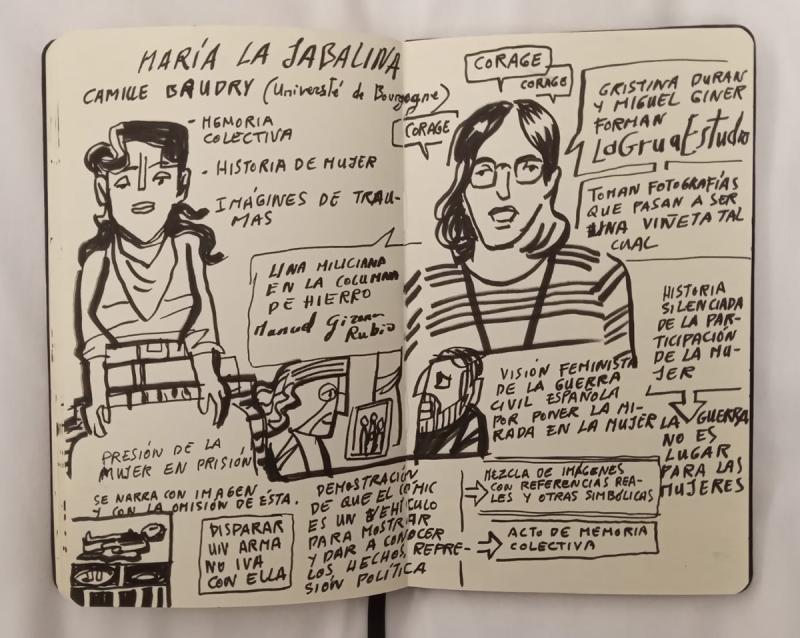 MARÍA LA JABALINA
CAMILLE BAUDRY (Université de Bourgogne)
- MEMORIA
COLECTIVA
- HISTORIA DE MUJER
IMÁGINES DE TRAU-
MAS
UNA MILICIANA
EN LA COLUMNA
DE HIERRO
Manuel Girona
Rubio
PRESIÓN DE LA
MUJER EN PRISIÓN
SE NARRA CON IMAGEN
Y CON LA OMISIÓN DE ESTA.
DISPARAR
UN ARMA
NO IVA
CON ELLA
DEMOSTRACIÓN
DE QUE EL CÓMIC
ES UN VEHÍCULO
PARA MOSTRAR
Y DAR A CONOCER
LOS HECHOS, REPRE-
SIÓN POLÍTICA
CORAGE
CORAGE
CORAGE
CRISTINA DURAN
Y MIGUEL GINER
FORMAN
LaGruaEstudio
TOMAN FOTOGRAFÍAS
QUE PASAN A SER
UNA VIÑETA TAL
CUAL
HISTORIA
SILENCIADA
DE LA PAR-
TICIPACIÓN
DE LA MU-
JER
LA GUERRA
NO ES
LUGAR
PARA LAS
MUJERES
VISIÓN FEMINISTA
DE LA GUERRA
CIVIL ESPAÑOLA
POR PONER LA MI-
RADA EN LA MUJER
MEZCLA DE IMÁGENES
CON REFERENCIAS REA-
LES Y OTRAS SIMBÓLICAS
ACTO DE MEMORIA
COLECTIVA